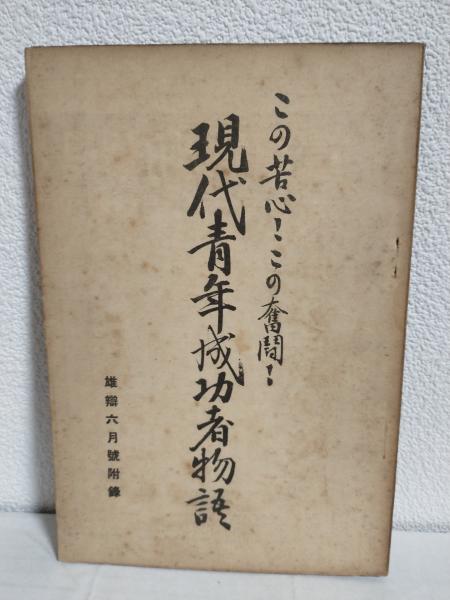 この苦心！この奮鬪！
現代青年成功者物語
雄辯六月號附錄